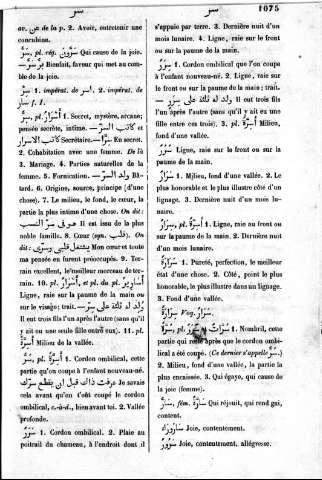 سر
سر
1075
av. عن de la p. 2. Avoir, entretenir une
concubine.
سُرُورٌ, pl. rég. Qui cause de la joie.
Bienfait, faveur qui met au com-
ble de la joie.
سِرْ 1. impérat. de 2. impérat. de
سار f. I.
سِرٌّ, pl. أَسْرَارٌ 1. Secret, mystère, arcane;
pensée secrète, intime. — كاتب السرّ et
كاتب الاسرار Secrétaire. — En secret.
2. Cohabitation avec une femme. De là
3. Mariage. 4. Parties naturelles de la
femme. 5. Fornication. — ولد السرّ Bâ-
tard. 6. Origine, source, principe (d'une
chose). 7. Le milieu, le fond, le cœur, la
partie la plus intime d'une chose. On dit:
Il est issu de la plus
noble famille. 8. Cœur (syn. قلب). On
dit: Mon cœur et toute
ma pensée en furent préoccupés. 9. Ter-
rain excellent, le meilleur morceau de ter-
rain. 10. pl. أسرار, et pl. du pl. أسارير
Ligne, raie sur la paume de la main ou
sur le visage: trait. —
Il est trois fils l'un après l'autre (sans qu'il
y ait eu une seule fille entre eux). 11. pl.
أسرّة Milieu de la vallée.
سُرٌّ, pl. أَسِرَّةٌ 1. Cordon ombilical, cette
partie qu'on coupe à l'enfant nouveau-né.
عرفت ذاك قبل ان يقطع سرّك Je savais
cela avant qu'on t'eût coupé le cordon
ombilical, c.-à-d., bien avant toi. 2. Vallée
profonde.
سَرَرٌ 1. Cordon ombilical. 2. Plaie au
poitrail du chameau, à l'endroit dont il
s'appuie par terre. 3. Dernière nuit d'un
mois lunaire. 4. Ligne, raie sur le front
ou sur la paume de la main.
سِرَرٌ 1. Cordon ombilical que l'on coupe
à l'enfant nouveau-né. 2. Ligne, raie sur
le front ou sur la paume de la main; trait.
— ولد له ثلاثة على سرر Il eut trois fils
l'un après l'autre (sans qu'il y ait eu une
fille entre ces trois). 3. pl. Milieu,
fond d'une vallée.
1. Ligne, raie sur le front ou sur
la paume de la main.
سَرَارٌ 1. Milieu, fond d'une vallée. 2. Le
plus honorable et le plus illustre côté d'un
lignage. 3. Dernière nuit d'un mois lu-
naire.
سِرَارٌ, pl. أَسِرَّةٌ 1. Ligne, raie au front ou
sur la paume de la main. 2. Dernière nuit
d'un mois lunaire.
سَرَارَةٌ 1. Pureté, perfection, le meilleur
état d'une chose. 2. Côté, point le plus
honorable, le plus illustre dans un lignage.
3. Fond d'une vallée.
سَرَارٌ V'oy.
سُرَّةٌ, pl. سُرَّاتٌ 1. Nombril, cette
partie qui reste après que le cordon ombilic-
al a été coupé. (Ce dernier s'appelle سُرٌّ.)
2. Milieu, fond d'une vallée, la partie la
plus encaissée. 3. Qui égaye, qui cause de
la joie (femme).
سَارٌّ, fém. سَارَّةٌ Qui réjouit, qui rend gai,
content.
Joie, contentement.
سُرُورٌ Joie, contentement, allégresse.